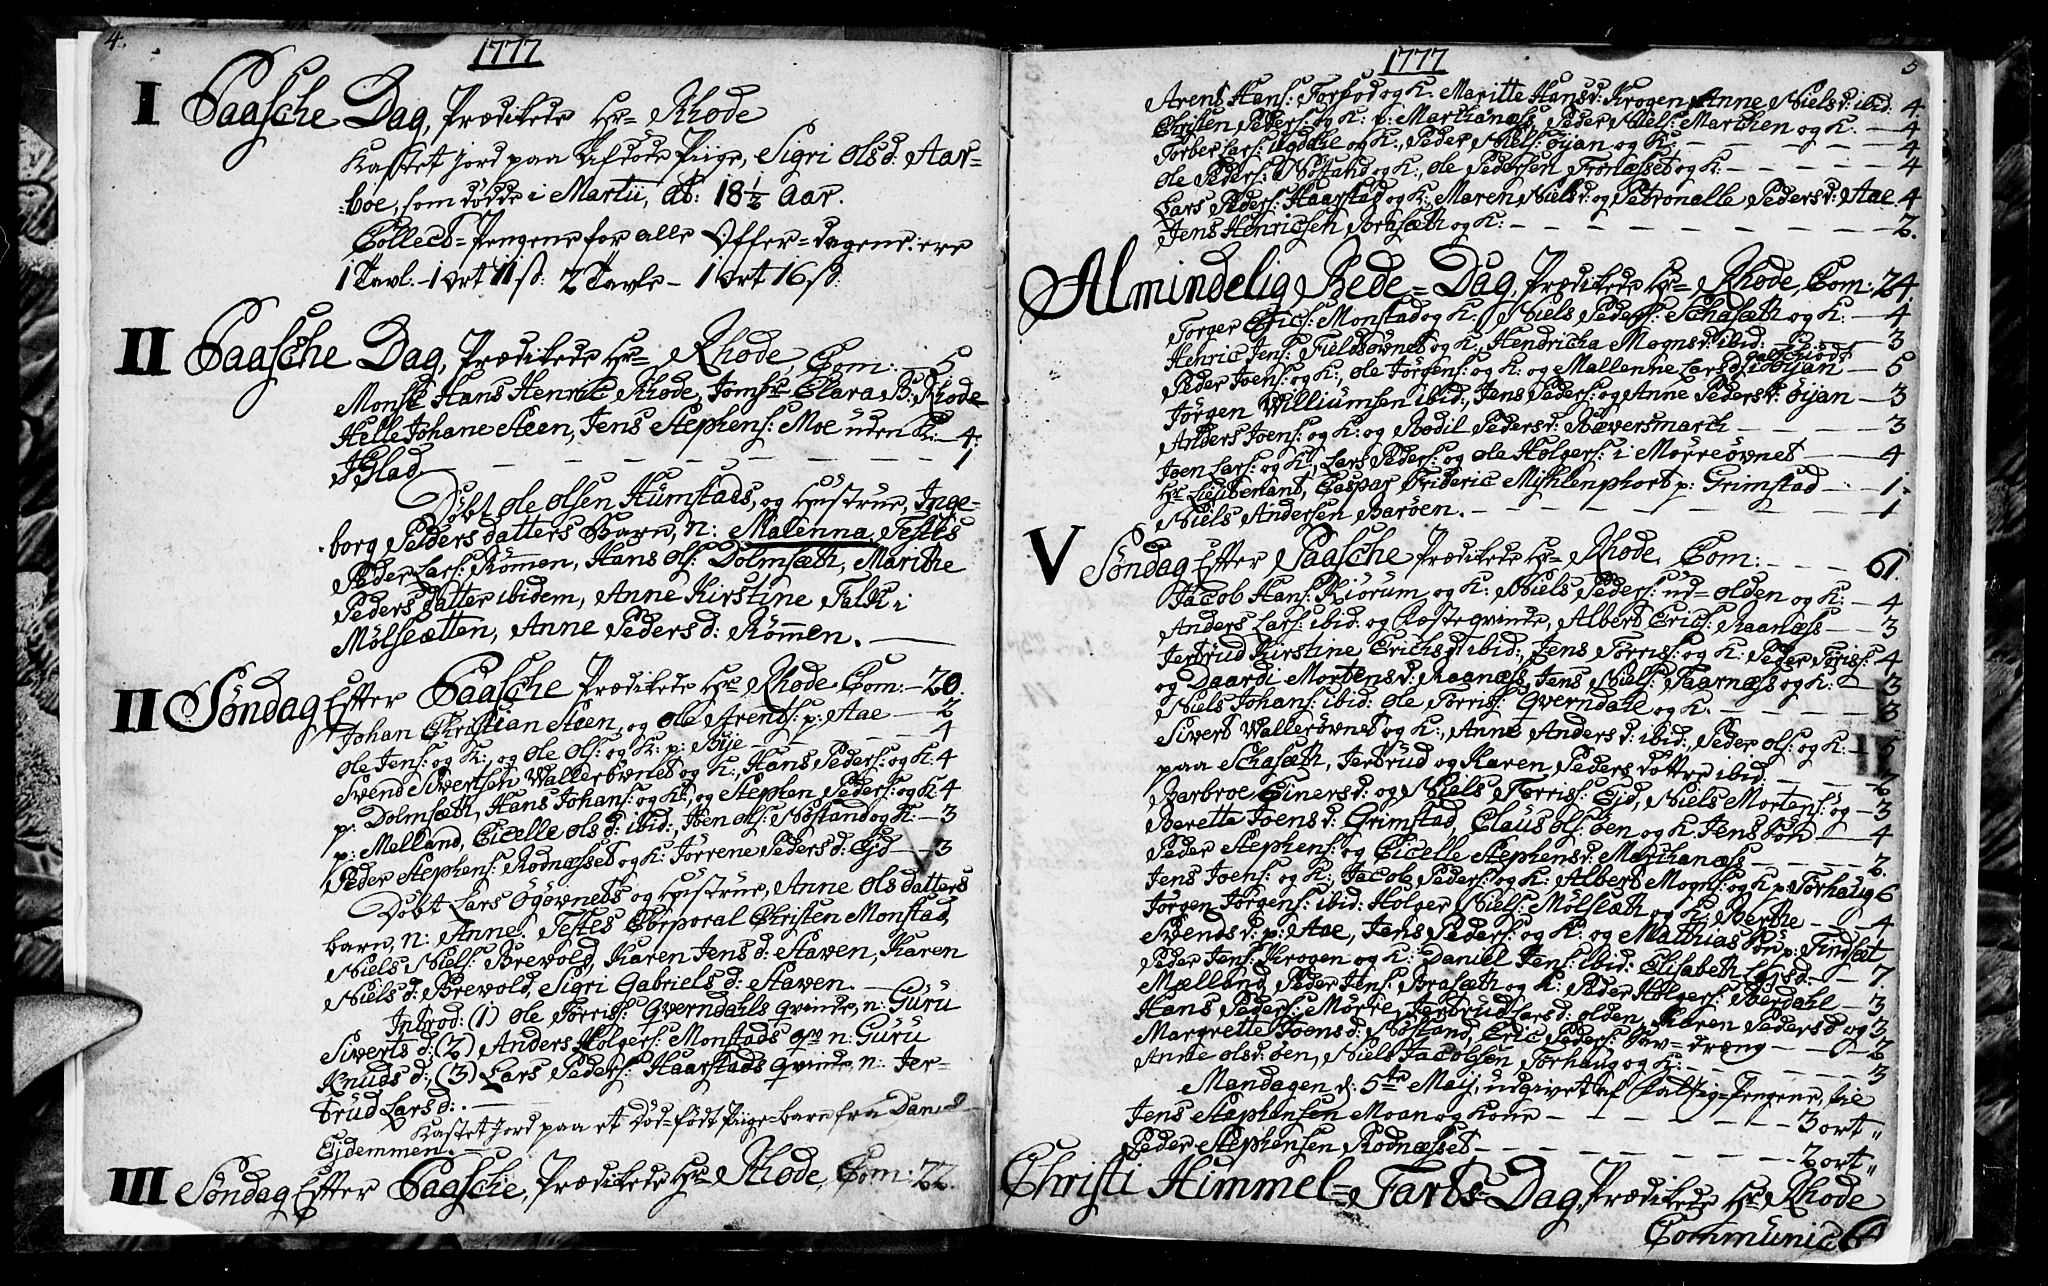 4.
1777
I Paasche Dag, Prædikede Hr= Rhode
Kastet Jord paa Afdøde Piige, Sigri Olsd: Aar=
:bøe, som døde i Martii, æt: 18 1/2 Aar.
Collect=Pengene for alle Offer=dagene ere
1 Tavl.- 1 ort 11 s: 2 Tavle - 1 ort 16 s:
II Paasche Dag, Prædikede Hr= Rhode, Com: - 5
Monsr Hans Henric Rhode, Jomfr= Clara B: Rhode
Helle Johane Steen, Jens Stephens: Moe uden K: - 4:
J Glad - - - - - - - 1
Døbt Ole Olsen Humstads, og Hustrue, Inge=
borg Pedersdatters Barn, n: Malenna. Testes
Peder Lars: Römen, Hans Ols: Dolmsæth, Marithe
Pedersdatter ibidem, Anne Kirstine Falk i
Mölseætten, Anne Pedersd: Römmen.
II Søndag Efter Paasche Prædikede Hr= Rhode Com: - 20.
Johan Christian Steen, og Ole Arents: p: Aae - 2
Ole Jens: og K:, og Ole Ols: og K: p: Bÿe - - - - 4
Svend Sivertsen Wallerövnet og K:, Hans Peders: og K: 4
p: Dolmsæth, Hans Johans: og K: og Stephen Peders: og K: 4
p: Melland, Cicelle Olsd: ibid:, Joen Ols: Nöstand og K: - 3
Peder Stephens: Rodnæsset og K: Jörrene Pedersd: Ejd - 3
Døbt Lars Ögövnets og Hustrue, Anne Olsdatters
barn, n: Anne. Testes Corporal Christen Monstad,
Niels Niels: Brevold, Karen Jensd: Staven, Karen
Nielsd: Brevold, Sigri Gabrielsd: Staven.
Introd: (1) Ole Törris: Qverndahls qvinde, n: Guru
Sivertsd: (2) Anders Holgers: Monstads qv: n: Guru
Knudsd: (3) Lars Peders: Haarstads qvinde, n: Jer=
trud Larsd:.
Kastet Jord paa et Död=födt Piige=barn fra
Ejdemmen.
III Søndag Efter Paasche, Prædikede Hr= Rhode, Com: 22.
1777
5
Arent Hans: Forsod og K. Maritte Hansd: Krogen, Anne Nielsd: ibid. 4.
Christen Peders: og K: p: Markanæss, Peder Niels: Marchen og K. - 4
Torber Lars: Ugdahl og K:, Peder Niels: Öÿan og K: - - - 4
Ole Peders: Nöstand og K:, Ole Pedersen Fronæsset og K: - - - 4
Lars Peders: Haarstad og K: Maren Nielsd: og Petronelle Pedersd: Aae 4
Jens Henrichsen Brasæth og K: - - - - - - 2.
Almindelig Bede=Dag, Prædikede Hr= Rhode, Com: 24.
Torger Erics: Monstad og K: Niels Peders: Schasæth og K: - 4
Henric Jens: Fieldsövnet og K, Hendricha Mognsd: ibid: - - 3
Peder Joens: og K:, Ole Jörgens: og K: og Mallenne Larsd: i Öÿan - 5
Jörgen Williumsen ibid:, Jens Peders: og Anne Pedersd: Öÿan - 3
Anders Joens: og K: og Bodil Pedersd: Bæversmarck - - - 3
Joen Lars: og K:, Lars Peders: og Ole Holgers: i Mörreövnet - - 4
Hr Lieutenant, Caspar Frideric Mÿhlenphort p: Grimstad - - 1.
Niels Andersen Baröen. - - - - - - - 1
V Søndag Efter Paasche Prædikede Hr= Rhode. Com: - - - 61.
Jacob Hans: Kiörum, og K: Niels Peders: Ud=Olden og K: - 4
Anders Lars: ibid: og Kæstequinde, Albert Erics: Raanæss - - 3
Jertrud Kirstine Erichsd: ibid:, Jens Törris: og K: Peder Törris: 4
og Daardi Mortensd: Raanæss, Jens Niels: Taarnæss og K: - 3
Niels Johans: ibid: Ole Törris: Qverndahl og K. - - - - - 3
Sivert Wallerövnet og K:, Anne Andersd: ibid:, Peder Ols: og K: - 5
paa Schasæth, Jertrud og Karen Peders döttre ibid. - - - 2
Barbroe Einersd: og Niels Törris: Ejd, Niels Mortens: og - 3
Berette Joensd: Grimstad, Claus Ols: Öen og K. Jens Sön - - 4
Peder Stephens: og Cicelle Stephensd: Markanæss - - - - 2.
Jens Joens: og K: Jacob Peders: og K: Albert Mogns: og K p: Torhaug 6
Jörgen Jörgens: ibid: Holger Niels: Mölseæth og K: Berthe - - 4
Svendsd: p: Aae, Jens Peders: og K: og Matthias Sön p: Findsæt
Peder Jens: Krogen og K: Daniel Jens: ibid: Elisabeth - 7.
Mælland, Peder Jens: Brasæth og K: Peder Holgers: Berdahl - 3
Hans Peders: Mörre, Jertrud Larsd: Olden, Karen Pedersd og 3
Margrette Joensd: Nöstand, Eric Peders: =dræng - - 2
Anne Olsd: Öen, Niels Jacobsen Torhaug og K: - - - - 3
Mandagen d: 5te Maij, udgivet af Fattig=Pengene, til
Jens Stephensen Moan og Kone - - - - - 3 ort "
Peder Stephensen Rodnæsset - - - - - - 2 ort "
Christi Himmel=Farts=Dag, Prædikede Hr= Rhode
Communic 64